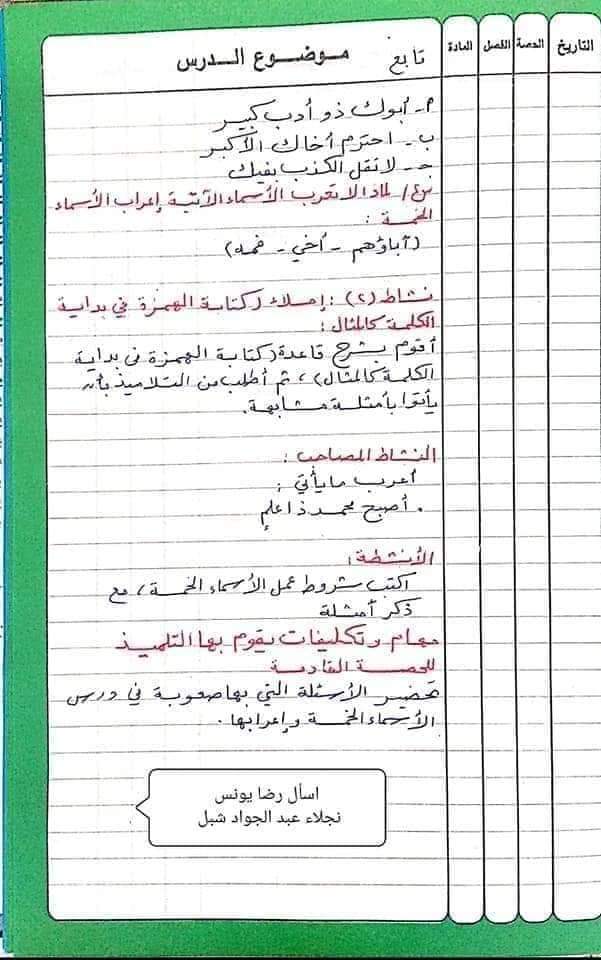 التاريخ
الحصة
الفصل
المادة
تابع موضوع الدرس
أ- أبوك ذو أدب كبير
ب- احترم أخاك الأكبر
جـ- لا تقل الكذب بفيك
س٤/ لماذا لا تعرب الأسماء الآتية إعراب الأسماء
الخمسة :
(آباؤهم - أخي - فمه)
نشاط (٢) : إملاء (كتابة الهمزة في بداية
الكلمة كالمثال :
أقوم بشرح قاعدة (كتابة الهمزة في بداية
الكلمة كالمثال)، ثم أطلب من التلاميذ بأن
يأتوا بأمثلة مشابهة.
النشاط المصاحب :
أعرب ما يأتي :
. أصبح محمد ذا علم
الأنشطة :
اكتب شروط عمل الأسماء الخمسة، مع
ذكر أمثلة
مهام وتكليفات يقوم بها التلميذ
للحصة القادمة
تحضير الأسئلة التي بها صعوبة في درس
الأسماء الخمسة وإعرابها.
اسأل رضا يونس
نجلاء عبد الجواد شبل